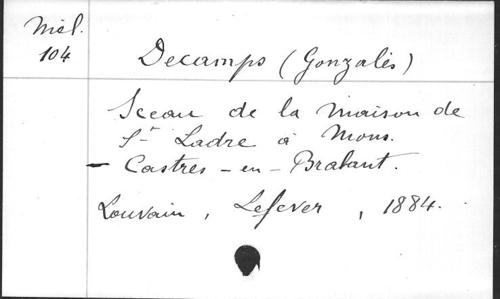 Mél.
104
Decamps (Gonzalès)
Sceau de la maison de
St Ladre à Mons.
- Castres - en - Brabant.
Louvain, Lefever, 1884.